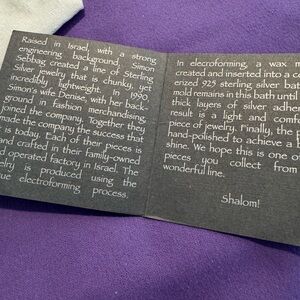 Raised in Israel, with a strong
engineering background, Simon
Sebbag created a line of Sterling
Silver jewelry that is chunky, yet
incredibly lightweight. In 1990,
Simon's wife Denise, with her back-
ground in fashion merchandising,
joined the company. Together they
made the company the success that
it is today. Each of their pieces is
and crafted in their family-owned
d operated factory in Israel. The
elry is produced using the
que electroforming process.
In elecroforming, a wax m
created and inserted into a c
enzed 925 sterling silver bat
mold remains in this bath until
thick layers of silver adhe
result is a light and comf
piece of jewelry. Finally, the p
hand-polished to achieve a b
shine. We hope this is one o
pieces you collect from
wonderful line.
Shalom!